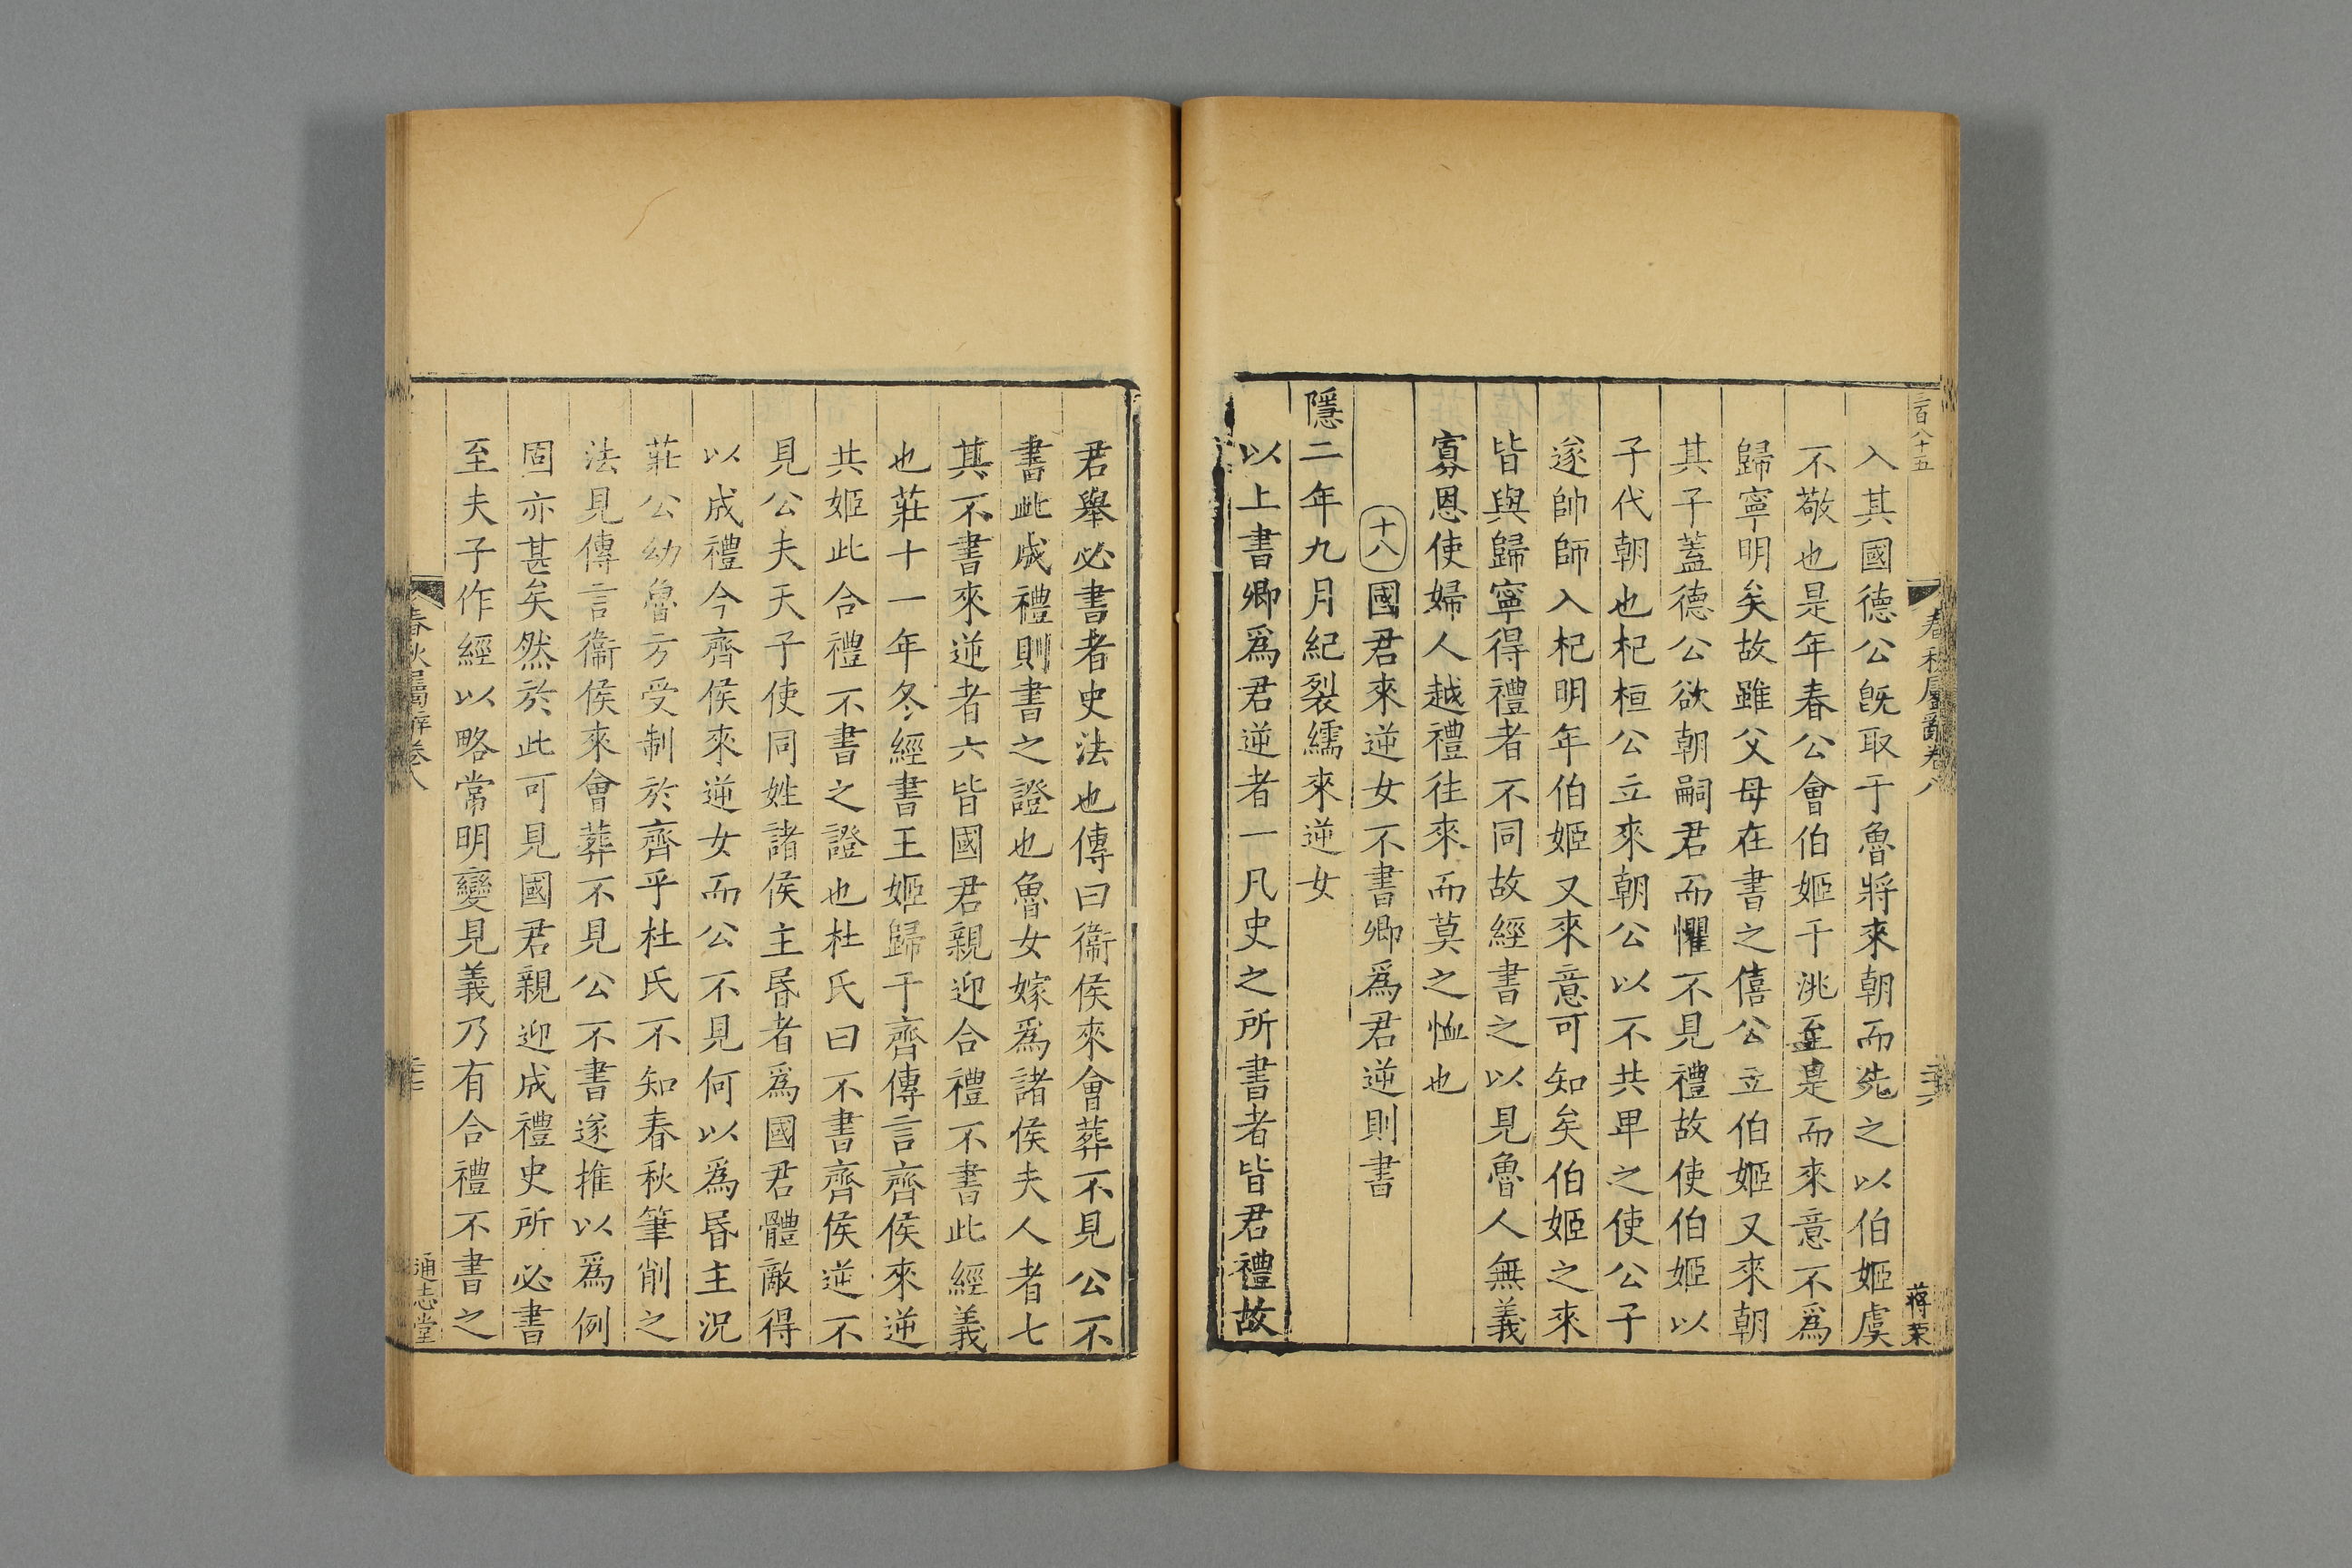 三百八十五
春秋屬辭卷八
蔣荣
入其國德公旣取于魯將來朝而先之以伯姬虞
不敬也是年春公會伯姬于洮至是而來意不爲
歸寧明矣故雖父母在書之僖公立伯姬又來朝
其子蓋德公欲朝嗣君而懼不見禮故使伯姬以
子代朝也杞桓公立來朝公以不共卑之使公子
遂帥師入杞明年伯姬又來意可知矣伯姬之來
皆與歸寧得禮者不同故經書之以見魯人無義
寡恩使婦人越禮往來而莫之恤也
十八國君來逆女不書卿爲君逆則書
隱二年九月紀裂繻來逆女
以上書卿爲君逆者一凡史之所書者皆君禮故
君舉必書者史法也傳曰衞侯來會葬不見公不
書此成禮則書之證也魯女嫁爲諸侯夫人者七
其不書來逆者六皆國君親迎合禮不書此經義
也莊十一年冬經書王姬歸于齊傳言齊侯來逆
共姬此合禮不書之證也杜氏曰不書齊侯逆不
見公夫天子使同姓諸侯主昏者爲國君體敵得
以成禮今齊侯來逆女而公不見何以爲昏主況
莊公幼魯方受制於齊乎杜氏不知春秋筆削之
法見傳言衞侯來會葬不見公不書遂推以爲例
固亦甚矣然於此可見國君親迎成禮史所必書
至夫子作經以略常明變見義乃有合禮不書之
春秋屬辭卷八
通志堂